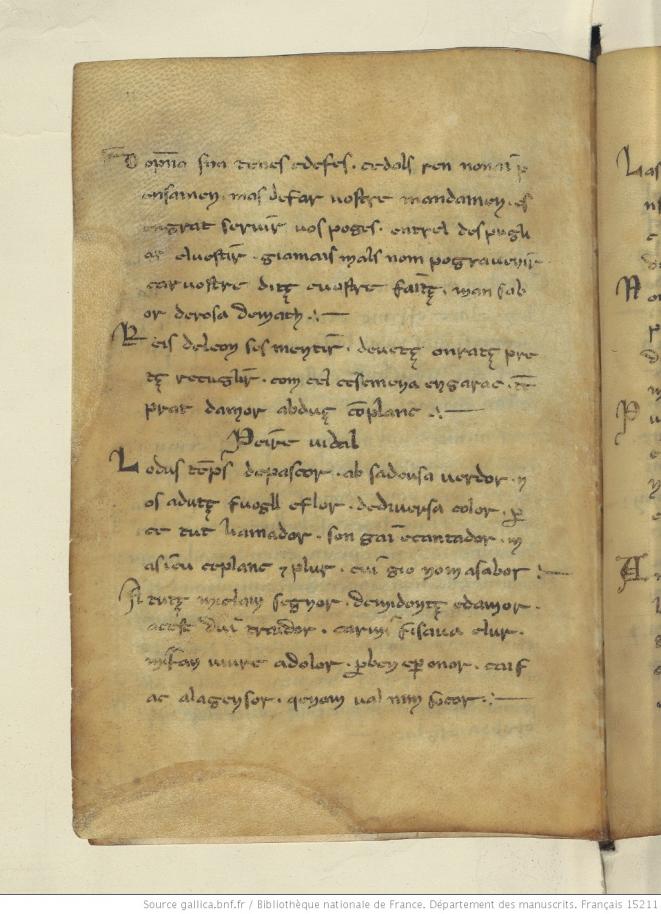 Dopña sina tenes edefes · cedals ren non
ensamen · mas defar uostre mandamen · es
engrat seruir uos poges · entrel despogli
ar eluestir · giamais mals nom pograuenir
car uostre ditz euostre faitz · man sab
or derosa demath
Reis deleon ses mentir · deuetz onratz pre
tz recuglir · com cel cesemena engarac
prat damor abduz cõplanc
Peire uidal
Lodus tẽps depascor · ab sadousa uerdor · n
os adutz fuogll eflor · dediuersa color · ꝑ
ce tut liamador · son gai ecantador · m
as ieu ceplanc ⁊ plur · cui gio nom asabor
A tutz miclam segnor · demidontz edamor ·
acest dui traidor · carmi fisaua elur ·
mifan uiure adolor · ꝑben eꝑ onor · caif
ac alagensor · qenom ual nim socor
Las
N
P
A
Source gallica.bnf.fr / Bibliothèque nationale de France. Département des manuscrits. Français 15211